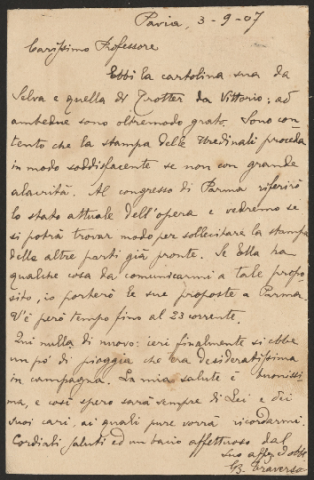 Pavia, 3-9-07
Carissimo Professore
Ebbi la cartolina sua da
Selva e quella di Trotter da Vittorio; ad
ambedue sono oltremodo grato. Sono con-
tento che la stampa delle Uredinali proceda
in modo soddisfacente se non con grande
alacrità. Al congresso di Parma riferirò
lo stato attuale dell'opera e vedremo se
si potrà trovar modo per sollecitare la stampa
delle altre parti già pronte. Se Ella ha
qualche cosa da comunicarmi a tale propo-
sito, io porterò le sue proposte a Parma.
V'è però tempo fino al 23 corrente.
Qui nulla di nuovo: ieri finalmente si ebbe
un pò di pioggia che era desideratissima
in campagna. La mia salute è buonissi-
ma, e così spero sarà sempre di Lei e dei
suoi cari, ai quali pure vorrà ricordarmi.
Cordiali saluti ed un bacio affettuoso dal
Suo aff. obbl.
GB. Traverso